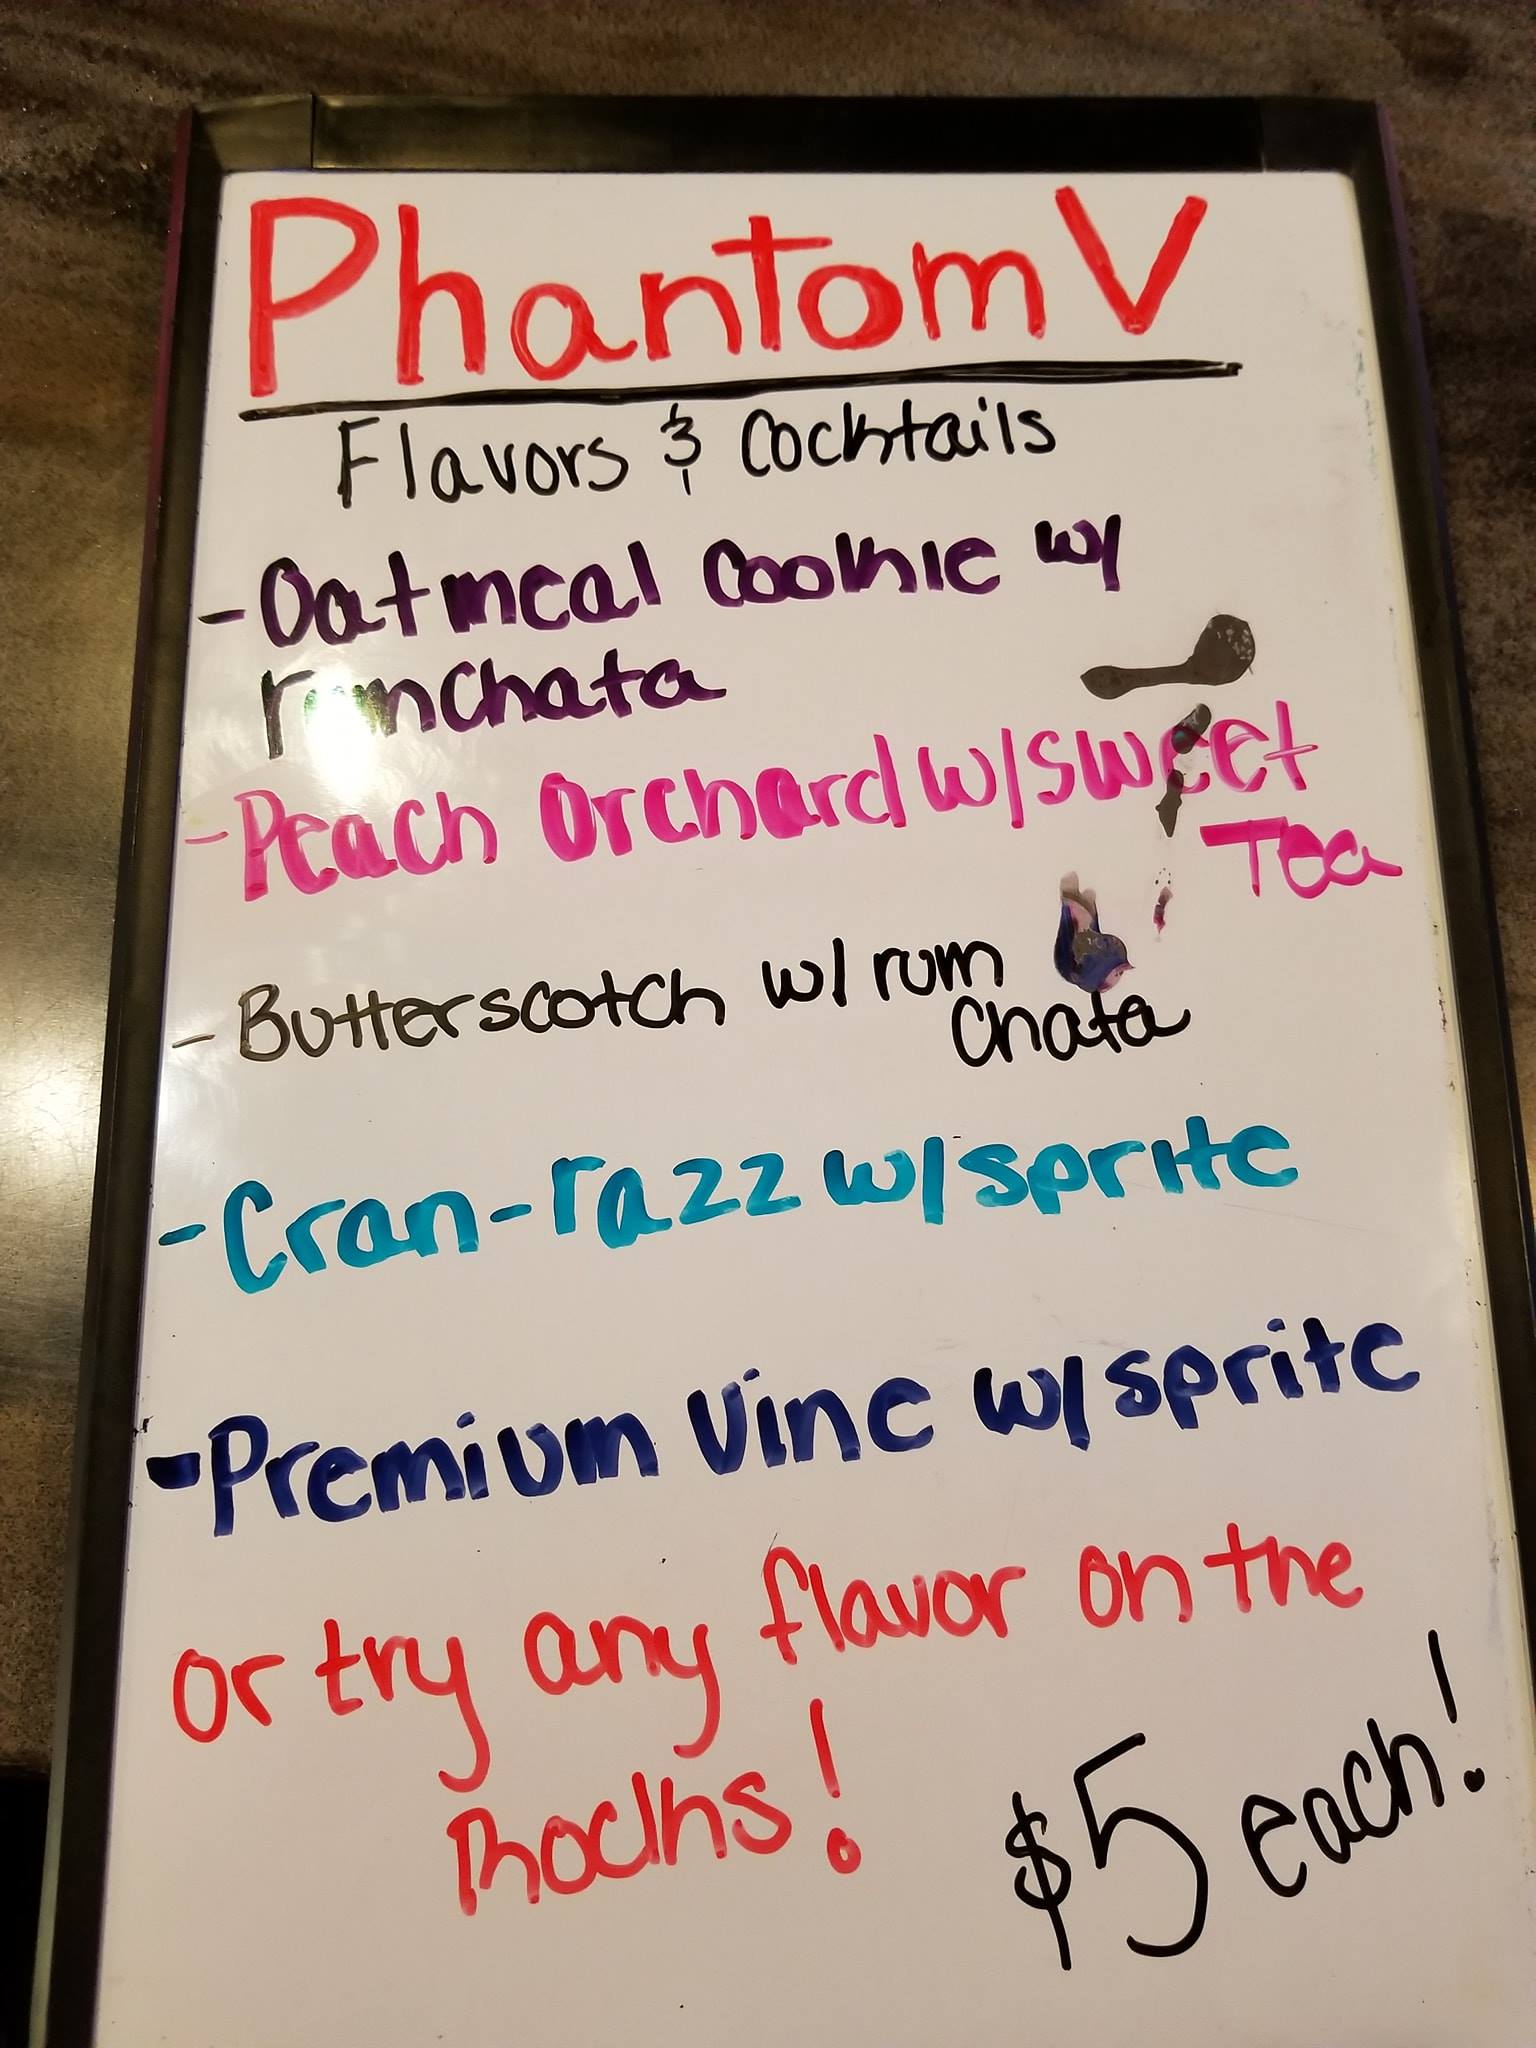 Phantom V
Flavors & Cocktails
- Oatmeal Cookie w/
rumchata
- Peach Orchard w/ sweet
Tea
- Butterscotch w/ rum
chata
- Cran-razz w/ sprite
- Premium Vine w/ sprite
or try any flavor on the
Rocks!
$5 each!